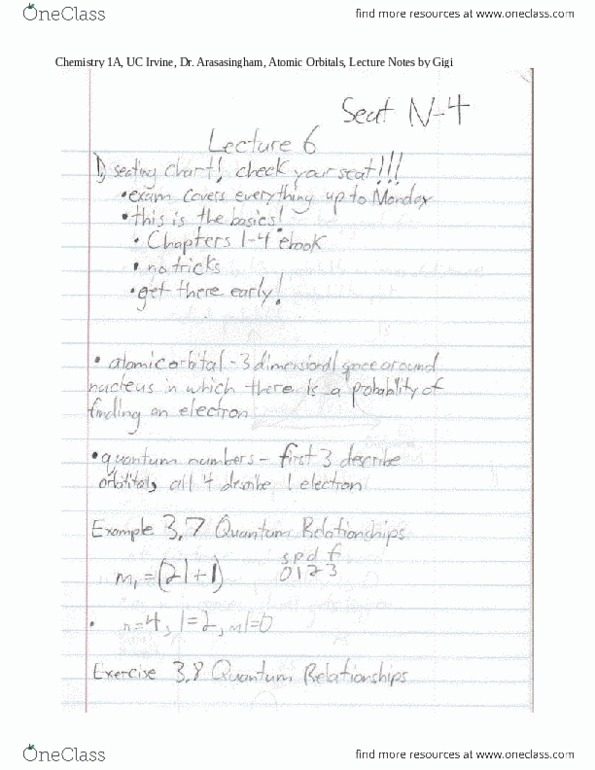 OneClass
find more resources at www.oneclass.com
Chemistry 1A, UC Irvine, Dr. Arasasingham, Atomic Orbitals, Lecture Notes by Gigi
Seat N-4
Lecture 6
1) seating chart! check your seat!!!
•exam covers everything up to Monday
•this is the basics!
• Chapters 1-4 ebook
• no tricks
•get there early!
• atomic orbital - 3 dimensional space around
nucleus in which there is a probability of
finding an electron
•quantum numbers - first 3 describe
orbitals, all 4 describe 1 electron
Example 3,7 Quantum Relationships
s p d f
ml =(2l+1) 0 1 2 3
• n=4, l=2, ml=0
Exercise 3,8 Quantum Relationships
OneClass
find more resources at www.oneclass.com